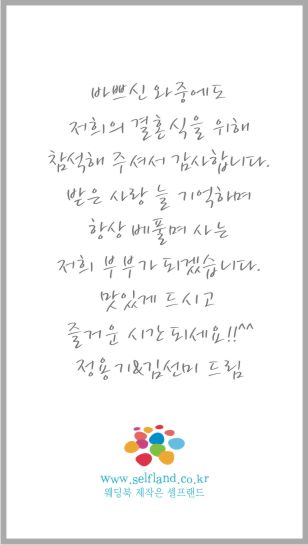 바쁘신 와중에도
저희의 결혼식을 위해
참석해 주셔서 감사합니다.
받은 사랑 늘 기억하며
항상 베풀며 사는
저희 부부가 되겠습니다.
맛있게 드시고
즐거운 시간 되세요!!^^
정용기&김선미 드림
www.selfland.co.kr
웨딩북 제작은 셀프랜드